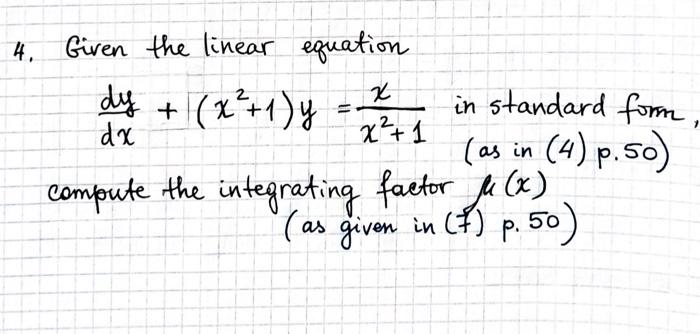 4. Given the linear equation
dy/dx + (x²+1)y = x/(x²+1) in standard form,
(as in (4) p.50)
compute the integrating factor μ(x)
(as given in (7) p. 50)